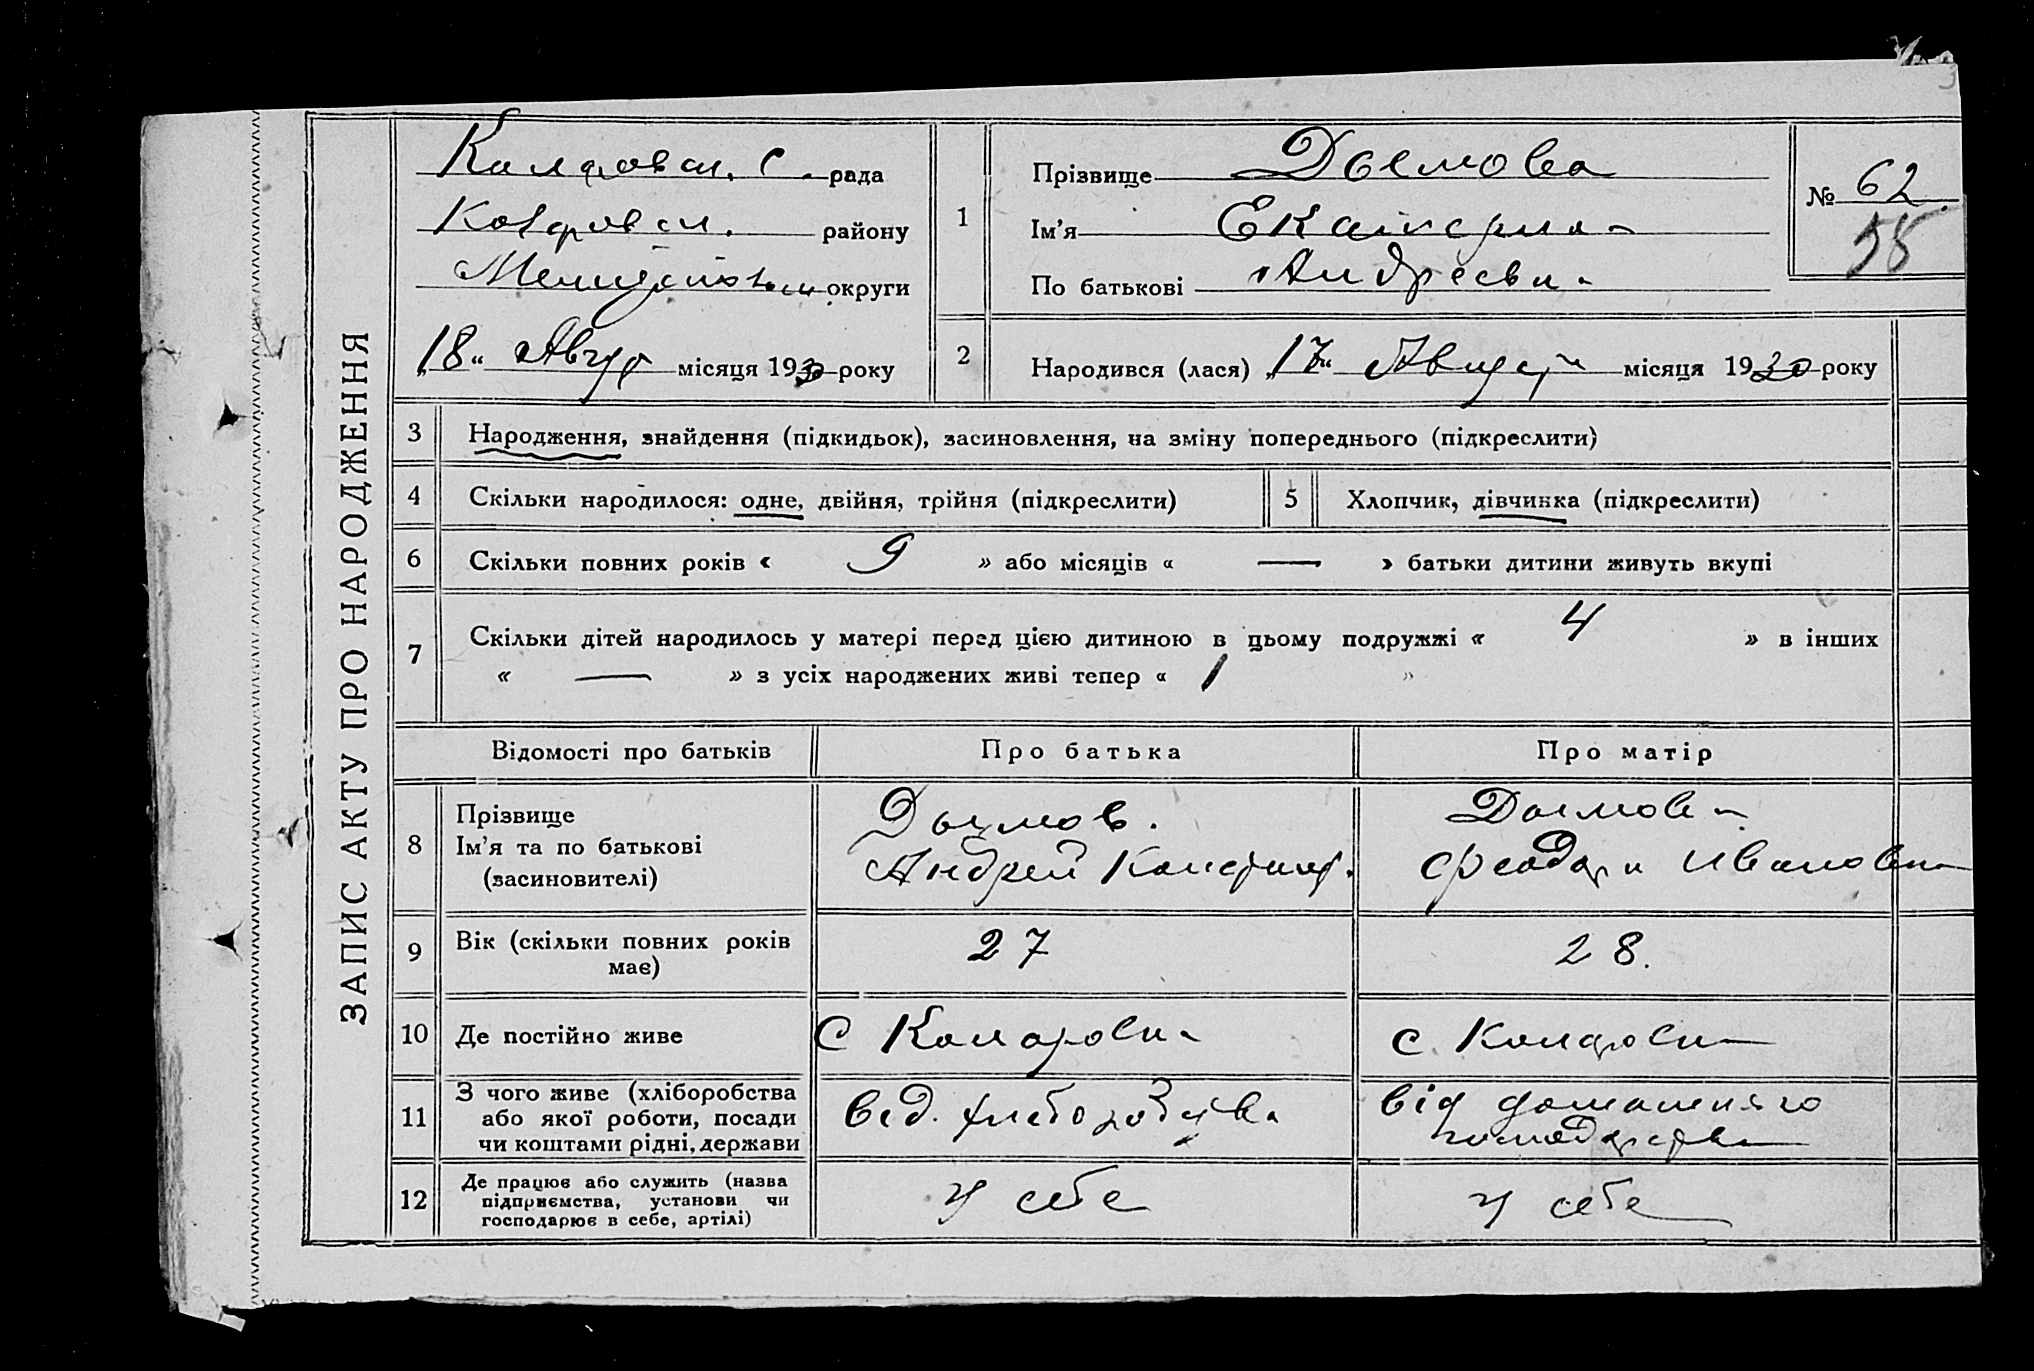 ЗАПИС АКТУ ПРО НАРОДЖЕННЯ
рада
району
округи
„18“ Август місяця 1930 року
1
Прізвище Дымова
Ім'я Екатерина
По батькові Андреевна
№ 62
58
2
Народився (лася) „17“ Август місяця 1930 року
3 Народження, знайдення (підкидьок), засиновлення, на зміну попереднього (підкреслити)
4 Скільки народилося: одне, двійня, трійня (підкреслити)
5 Хлопчик, дівчинка (підкреслити)
6 Скільки повних років « 9 » або місяців « — » батьки дитини живуть вкупі
7 Скільки дітей народилось у матері перед цією дитиною в цьому подружжі « 4 » в інших
« — » з усіх народжених живі тепер « 1 »
Відомості про батьків
Про батька
Про матір
8
Прізвище
Ім'я та по батькові
(засиновителі)
Дымов.
Андрей
Дымова
Феодора Ивановна
9
Вік (скільки повних років
має)
27
28.
10 Де постійно живе
с
с.
11
З чого живе (хліборобства
або якої роботи, посади
чи коштами рідні, держави
від. хліборобства
від домашнього
господарства
12
Де працює або служить (назва
підприємства, установи чи
господарює в себе, артілі)
у себе
у себе